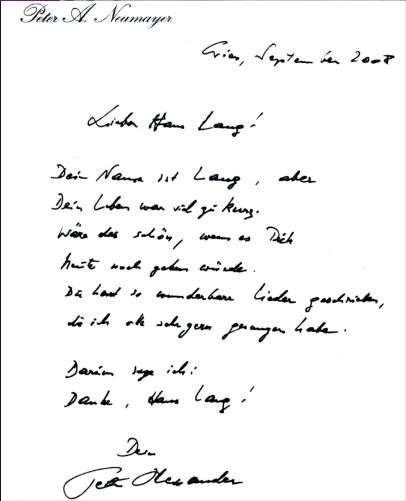 Peter A. Neumayer
September 2008
Lieber Hans Lang!
Dein Name ist Lang, aber
Dein Leben war viel zu kurz.
Wäre das schön, wenn es Dich
heute noch geben würde.
Du hast so wunderbare Lieder geschrieben,
die ich sehr gern gesungen habe.
Darum sage ich:
Danke, Hans Lang!
Dein
Peter Alexander